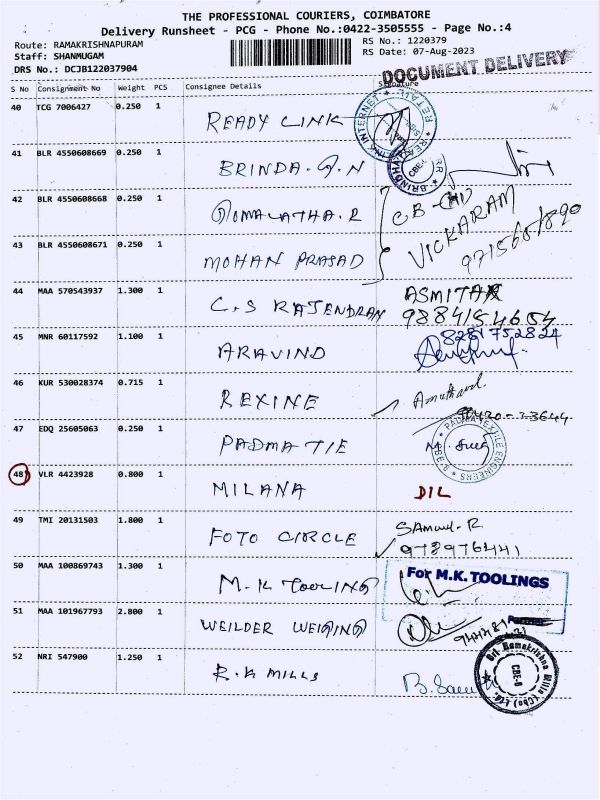 THE PROFESSIONAL COURIERS, COIMBATORE
Delivery Runsheet - PCG - Phone No.:0422-3505555 - Page No.:4
Route: RAMAKRISHNAPURAM
Staff: SHANMUGAM
DRS No.: DCJB122037904
RS No.: 1220379
RS Date: 07-Aug-2023
DOCUMENT DELIVERY
S No Consignment No Weight PCS Consignee Details Signature
40 TCG 7006427 0.250 1 READY LINK
41 BLR 4550608669 0.250 1 BRINDA.G.N
42 BLR 4550608668 0.250 1 GOMALATHA.R
43 BLR 4550608671 0.250 1 MOHAN PRASAD
VICKARAM
44 MAA 570543937 1.300 1 C.S RAJENDRAN ASMITHA
9884154654
45 MNR 60117592 1.100 1 ARAVIND 8281752824
46 KUR 530028374 0.715 1 REXINE
47 EDQ 25605063 0.250 1 PADMA TIE
48 VLR 4423928 0.800 1 MILANA DIL
49 TMI 20131503 1.800 1 FOTO CIRCLE Samuel.R
978976441
50 MAA 100869743 1.300 1 M.K TOOLING For M.K. TOOLINGS
51 MAA 101967793 2.800 1 WEILDER WEIGING
Partner
52 NRI 547900 1.250 1 R.K MILLS
Sri Ramakrishna Mills (Cbe) Ltd.
CBE-6